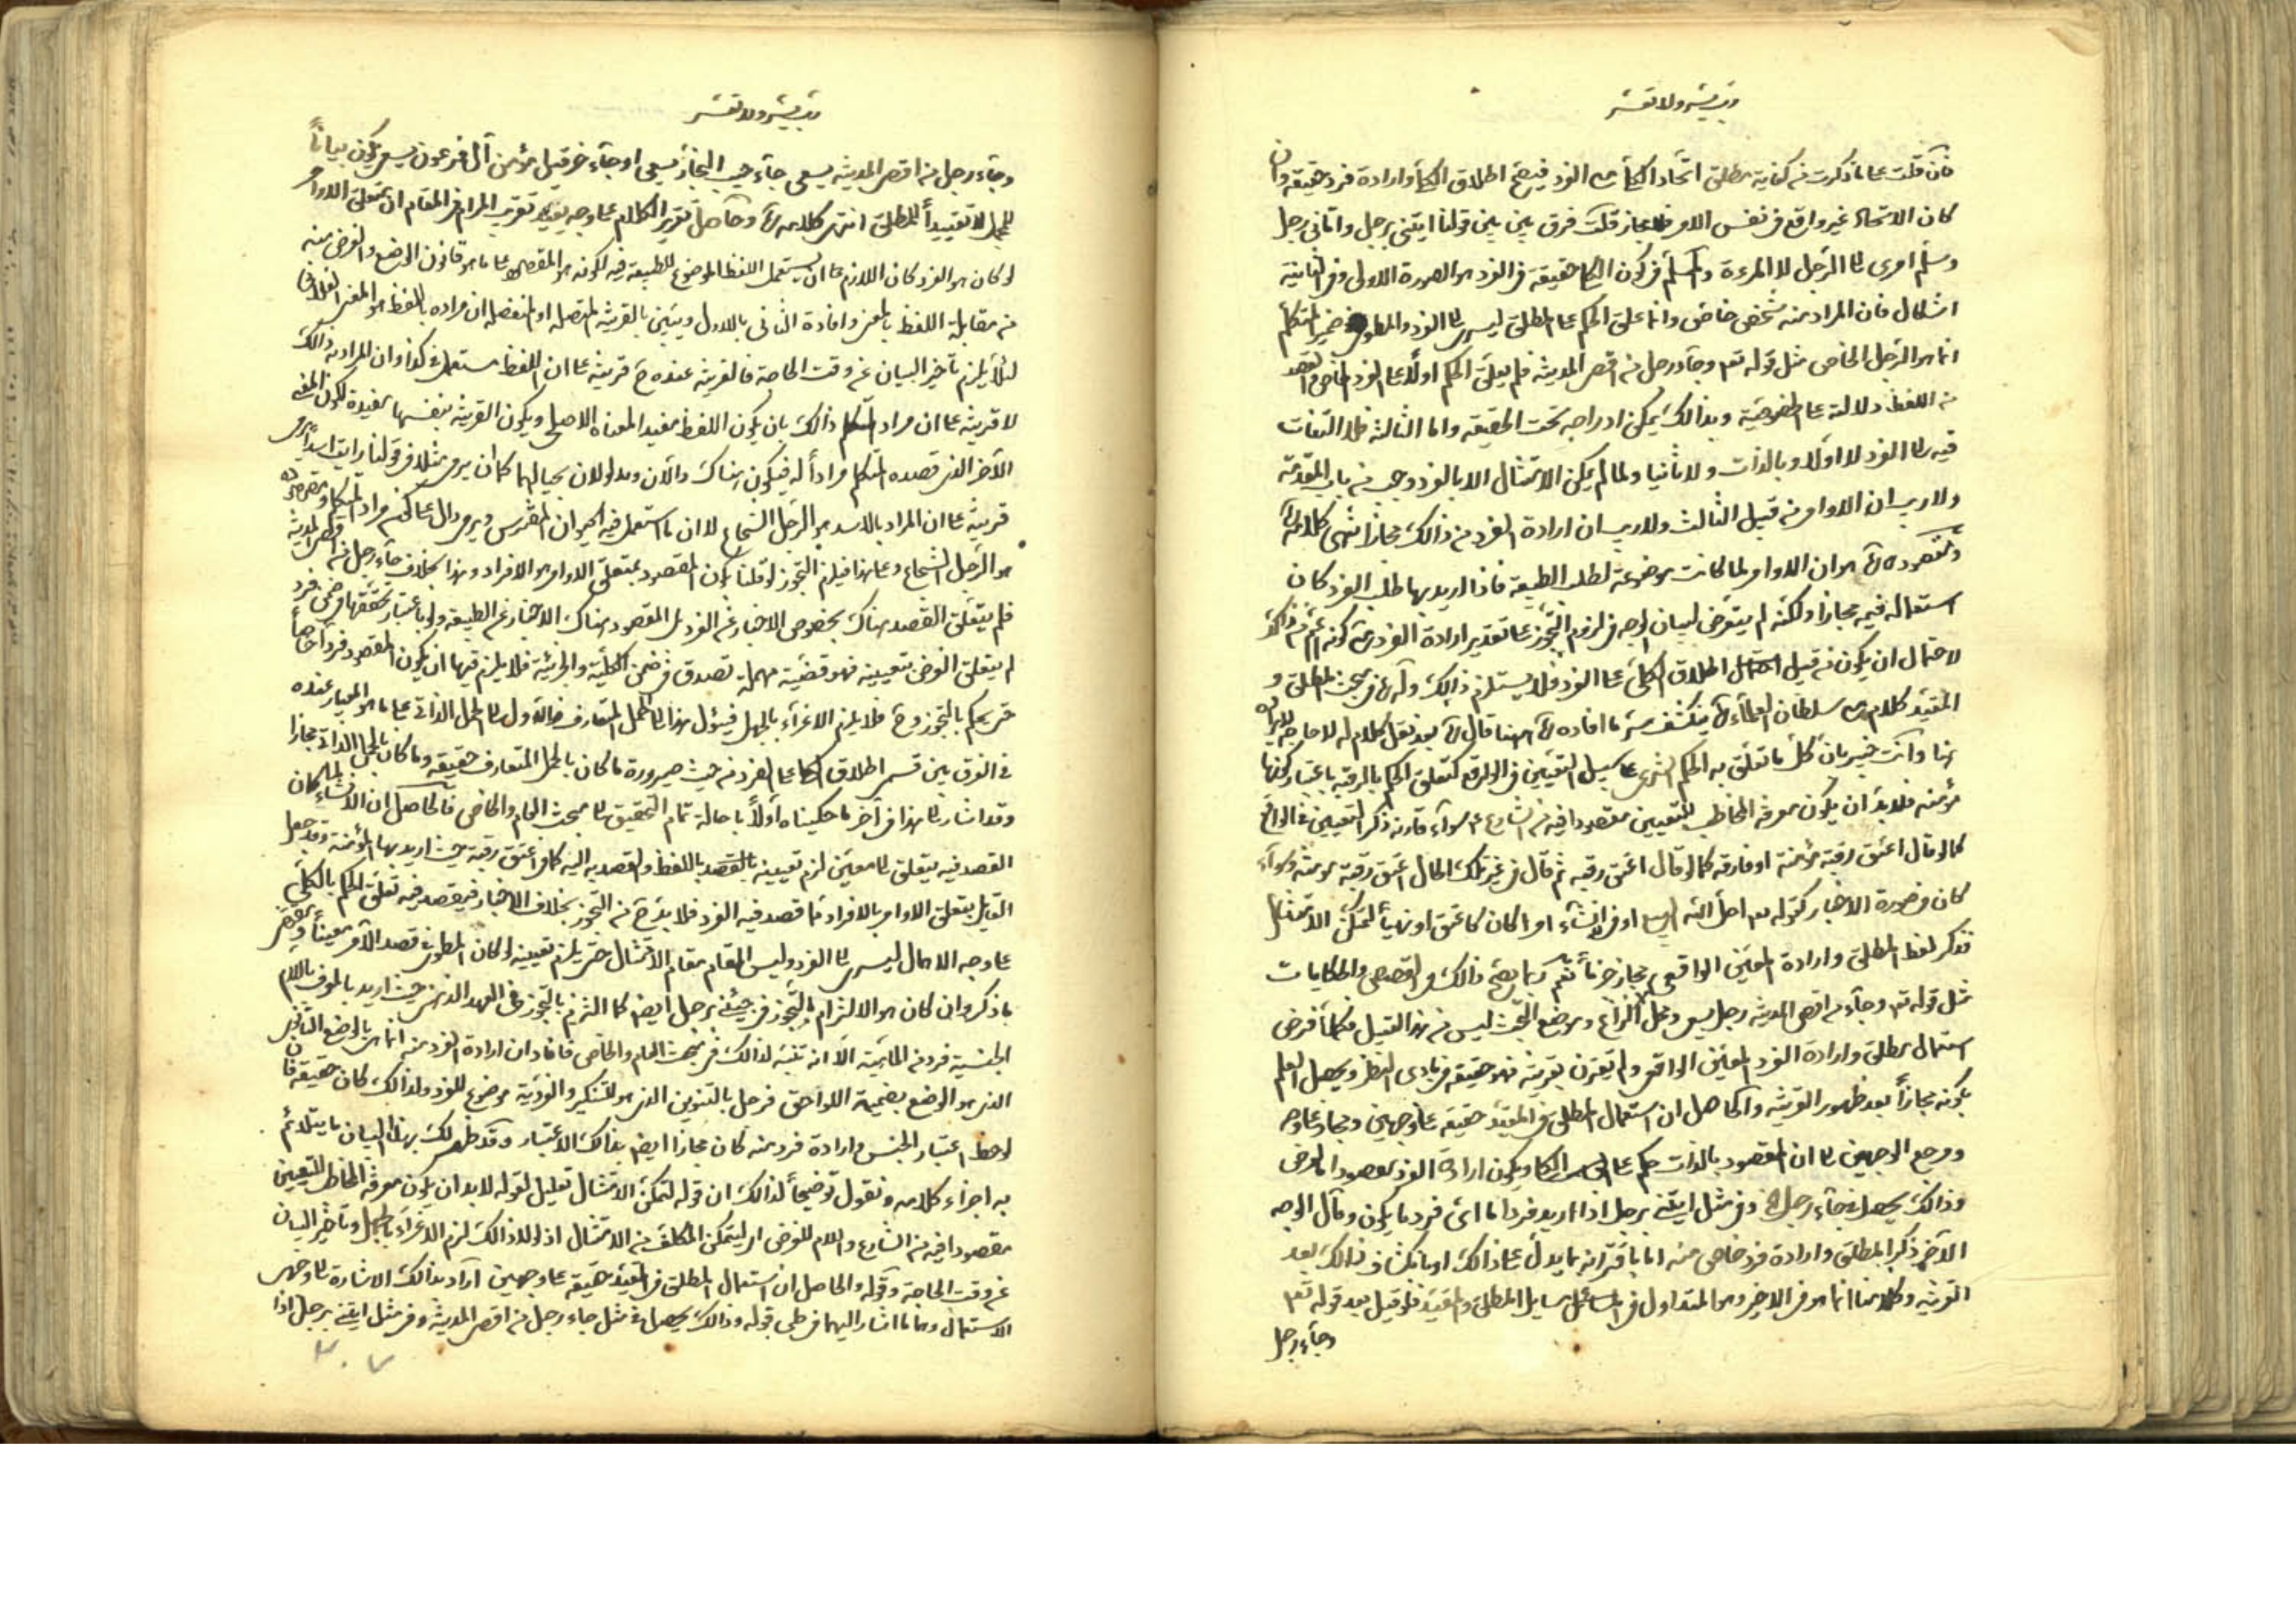 رب یسر ولا تعسر
فان قلت علی ما ذکرت من کفایة مطلق اتحاد الکلی مع الفرد فیصح اطلاق الکلی وارادة فرد حقیقة وان
کان الاتحاد غیر واقع فی نفس الامر قلت فرق بین بین قولنا ایتنی برجل واتانی رجل
وسلم امری الی الرجل لا المرءة والمسلم فی کون الکلی حقیقة فی الفرد هو الصورة الاولی وفی الثانیة
اشکال فان المراد منه شخص خاص وانما علق الحکم علی المطلق لیسری الی الفرد والمطلوب فی ضمیر المتکلم
انما هو الرجل الخاص مثل قوله تعم وجاء رجل من اقصی المدینة فلم یعلق الحکم اولا علی الفرد الخاص
من اللفظ دلالته علی الخصوصیة وبذالک یمکن ادراجه تحت الحقیقة واما الثالثة فلا التفات
فیه الی الفرد لا اولا وبالذات ولا ثانیا ولما لم یمکن الامتثال الا بالفرد وجب من باب المقدمة
ولا ریب ان الاوامر من قبیل الثالث ولا ریب ان ارادة الفرد من ذالک مجاز انتهی کلامه
ومقصوده ره هو ان الاوامر لما کانت موضوعة لطلب الطبیعة فاذا ارید بها طلب الفرد کان
استعماله فیه مجازا ولکنه لم یتعرض لبیان الوجه فی لزوم التجوز علی تقدیر ارادة الفرد مع کونه اعم من ذالک
لاحتمال ان یکون من قبیل اطلاق الکلی علی الفرد فلا یستلزم ذالک وله ره فی بحث المطلق و
المقید کلام مع سلطان العلماء ره ینکشف به ما افاده ره ههنا قال ره بعد نقل کلام له لا حاجة لایراده
هنا وانت خبیر بان کل ما تعلق به الحکم الشرعی علی سبیل التعیین فی الواقع کتعلق الحکم بالرقبة باعتبار کونها
مؤمنة فلا بد ان یکون معرفة المخاطب للتعیین مقصودا فیه من الشارع سواء قارنه ذکر التعیین فی الواقع
کما لو قال اعتق رقبة مؤمنة او فارقه کما لو قال اعتق رقبة ثم قال فی غیر تلک الحال اعتق رقبة مؤمنة وسواء
کان فی صورة الاخبار کقوله تعم احل الله البیع او فی الانشاء امرا کان کاعتق او نهیا لتمکن الامتثال
فذکر لفظ المطلق وارادة المعین الواقعی مجاز جزما نعم ربما یصح ذالک فی القصص والحکایات
مثل قوله تعم وجاء من اقصی المدینة رجل یسعی ومحل النزاع وموضع البحث لیس من هذا القبیل فکلما فرض
استعمال مطلق وارادة الفرد المعین الواقعی ولم یقترن بقرینة فهو حقیقة فی بادی النظر ویحصل العلم
بکونه مجازا بعد ظهور القرینة والحاصل ان استعمال المطلق فی المقید حقیقة علی وجهین ومجاز علی وجه
ومرجع الوجهین الی ان المقصود بالذات حکم علی الکلی ویکون ارادة الفرد مقصودا بالعرض
وذالک یحصل فی جاء رجل وفی مثل ایتنی برجل اذا ارید فردا ما ای فرد ما یکون ومآل الوجه
الآخر ذکر المطلق وارادة فرد خاص منه اما باقترانه بما یدل علی ذالک او بانکشاف ذالک بعد
القرینة وکلامنا انما هو فی الاخیر وهو المتداول فی مسایل المطلق والمقید فلو قیل بعد قوله تعم
وجاء رجل
رب یسر ولا تعسر
وجاء رجل من اقصی المدینة یسعی جاء حبیب النجار یسعی او جاء حزقیل مؤمن آل فرعون یسعی یکون بیانا
للمجمل لا تقییدا للمطلق انتهی کلامه ره وحاصل تقریر الکلام علی وجه یفید تقریب المرام فی المقام ان متعلق الاوامر
لو کان هو الفرد کان اللازم علی ان یستعمل اللفظ الموضوع للطبیعة فیه لکونه هو المقصود علی ما هو قانون الوضع والغرض منه
من مقابلة اللفظ بالمعنی وافادة الثانی بالاول ویتبین بالقرینة المتصلة او المنفصلة ان مراده باللفظ هو المعنی الفلانی
لئلا یلزم تأخیر البیان عن وقت الحاجة فالقرینة عنده ح قرینة علی ان اللفظ مستعمل فی کذا وان المراد به ذالک
لا قرینة علی ان مراد المتکلم ذالک بان یکون اللفظ مفید المعناه الاصلی ویکون القرینة بنفسها مفیدة لکون المعنی
الآخر الذی قصده المتکلم مرادا له فیکون هناک دالان ومدلولان بحیالهما کما ان یرمی مثلا فی قولنا رایت اسدا یرمی
قرینة علی ان المراد بالاسد هو الرجل الشجاع لا ان ما استعمل فیه الحیوان المفترس ویرمی دال علی کون مراد المتکلم ومقصوده
هو الرجل الشجاع وعلی هذا فیلزم التجوز لو قلنا بکون المقصود بمتعلق الاوامر هو الافراد وهذا بخلاف جاء رجل من اقصی المدینة
فلم یتعلق القصد هناک بخصوص الاخبار عن الفرد بل المقصود هناک الاخبار عن الطبیعة ولو باعتبار تحققها فی ضمن فرد
لم یتعلق الغرض بتعیینه فهو قضیة مهملة تصدق فی ضمن الکلیة والجزئیة فلا یلزم فیها ان یکون المقصود فردا خاصا
حتی یحکم بالتجوز وح فلا یلزم الاغراء بالجهل فیئول هذا الی الحمل المتعارف والاول الی الحمل الذاتی علی ما هو المعیار عنده
فی الفرق بین قسمی اطلاق الکلی علی الفرد من حیث صیرورة ما کان بالحمل المتعارف حقیقة وما کان بالحمل الذاتی مجازا
وقد اشار الی هذا فی آخر ما حکیناه اولا باحالة تمام التحقیق الی مبحث العام والخاص فالحاصل ان الانشاء لما کان
القصد فیه یتعلق الی معین لزم تعیینه باللفظ والقصد به الیه کما فی اعتق رقبة حیث ارید بها المؤمنة وقد جعل
القایل بتعلق الاوامر بالافراد مما قصد فیه الفرد فلا بد ح من التجوز بخلاف الاخبار فیقصد فیه تعلق الحکم بالکلی
علی وجه الاهمال لیسری الی الفرد ولیس المقام مقام الامتثال حتی یلزم تعیینه لو کان المطلوب فی قصد الآمر معینا
ما ذکر وان کان هو الالتزام بالتجوز فی جئنی برجل ایضا کما التزم بالتجوز فی العهد الذهنی حیث ارید بالمعرف باللام
الجنسیة فرد من الماهیة الا انه تنبه لذالک فی مبحث العام والخاص فافاد ان ارادة الفرد منه انما هی بالوضع الثانوی
الذی هو الوضع بضمیمة اللواحق فرجل بالتنوین الذی هو للتنکیر والفردیة موضوع للفرد ولذالک کان حقیقة فان
لوحظ اعتبار الجنس وارادة فرد منه کان مجازا ایضا بذالک الاعتبار وقد ظهر لک بهذا البیان ما یتلائم
به اجزاء کلامه ونقول توضیحا لذالک ان قوله لتمکن الامتثال تعلیل لقوله لابد ان یکون معرفة المخاطب للتعیین
مقصودا فیه من الشارع واللام للغرض ای لیتمکن المکلف من الامتثال اذ لولا ذالک لزم الاغراء بالجهل وتأخیر البیان
عن وقت الحاجة وقوله والحاصل ان استعمال المطلق فی المقید حقیقة علی وجهین اراد بذالک الاشارة الی وجهی
الاستعمال وهما ما اشار الیهما فی طی قوله وذالک یحصل فی مثل جاء رجل من اقصی المدینة وفی مثل ایتنی برجل اذا